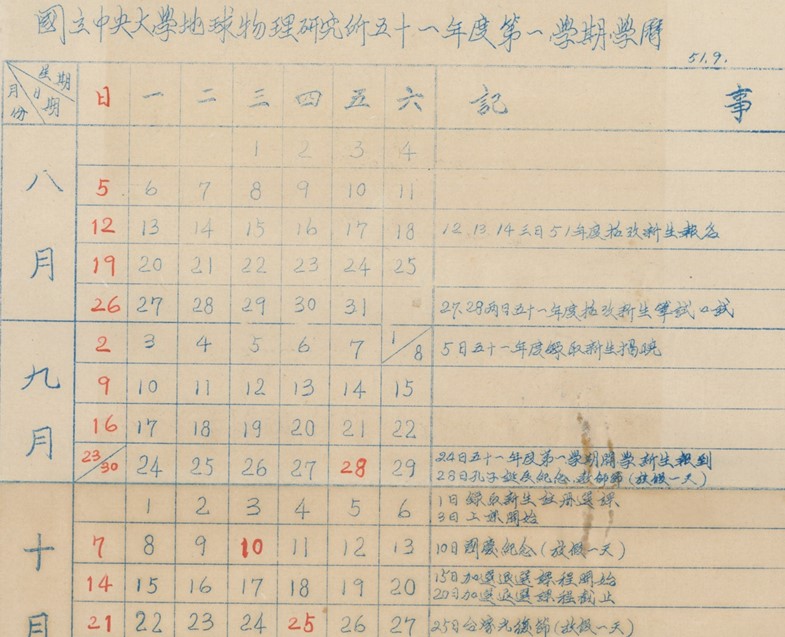 國立中央大學地球物理研究所五十一年度第一學期學曆
51.9.
星期
日期
月份
日 一 二 三 四 五 六 記 事
八月
1 2 3 4
5 6 7 8 9 10 11
12 13 14 15 16 17 18 12.13.14三日51年度招考新生報名
19 20 21 22 23 24 25
26 27 28 29 30 31 27.28兩日五十一年度招考新生筆試口試
九月
2 3 4 5 6 7 1/8 5日五十一年度錄取新生揭曉
9 10 11 12 13 14 15
16 17 18 19 20 21 22
23/30 24 25 26 27 28 29 24日五十一年度第一學期開學新生報到
28日孔子誕辰紀念教師節(放假一天)
十月
1 2 3 4 5 6 1日錄取新生註册選課
3日上課開始
7 8 9 10 11 12 13 10日國慶紀念(放假一天)
14 15 16 17 18 19 20 15日加選退選課程開始
20日加選退選課程截止
21 22 23 24 25 26 27 25日台灣光復節(放假一天)